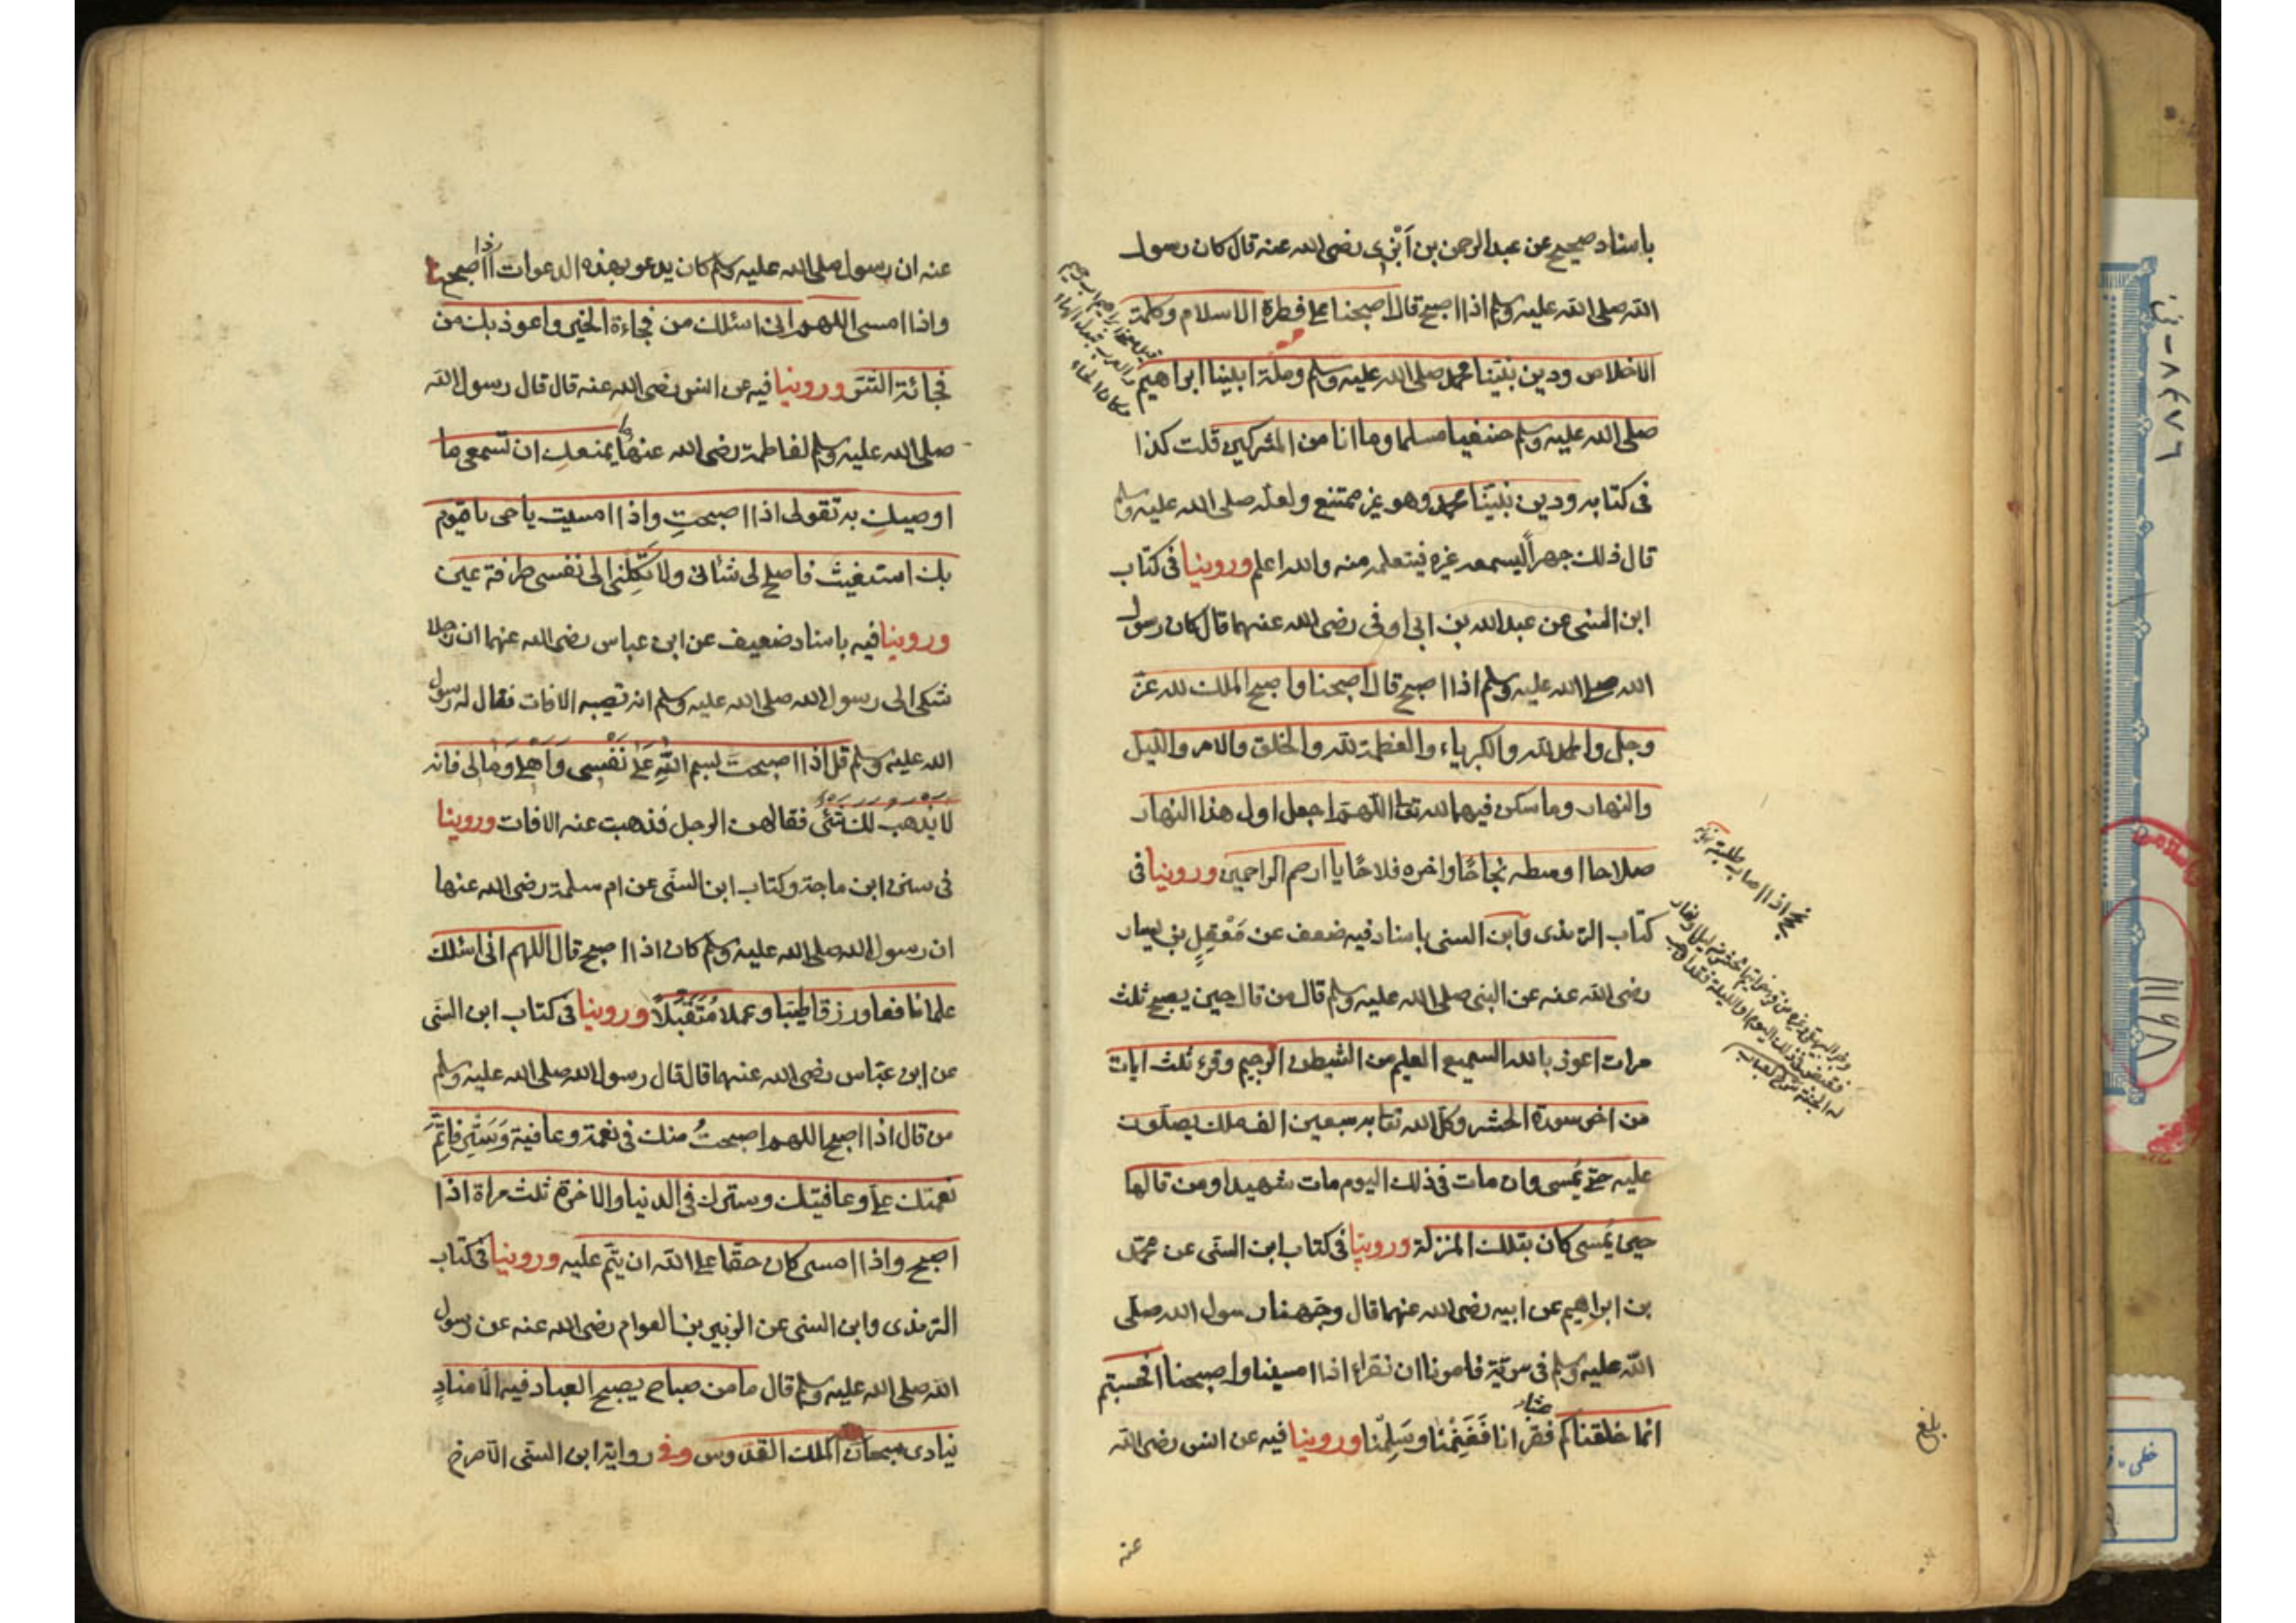 باسناد صحيح عن عبد الرحمن بن أبزى رضى الله عنه قال كان رسول
الله صلى الله عليه وسلم اذا اصبح قال اصبحنا على فطرة الاسلام وكلمة
الاخلاص ودين نبينا محمد صلى الله عليه وسلم وملة ابينا ابراهيم
صلى الله عليه وسلم حنيفا مسلما وما انا من المشركين قلت كذا
فى كتابه ودين نبينا محمد وهو غير ممتنع ولعله صلى الله عليه وسلم
قال ذلك جهراً ليسمعه غيره فيتعلمه منه والله اعلم وروينا فى كتاب
ابن السنى عن عبد الله بن ابى اوفى رضى الله عنهما قال كان رسول
الله صلى الله عليه وسلم اذا اصبح قال اصبحنا واصبح الملك لله عز
وجل والحمد لله والكبرياء والعظمة لله والخلق والامر والليل
والنهار وما سكن فيهما لله تعالى اللهم اجعل اول هذا النهار
صلاحا واوسطه نجاحًا واخره فلاحًا يا ارحم الراحمين وروينا فى
كتاب الترمذى وابن السنى باسناد فيه ضعف عن مَعْقِلِ بن يسار
رضى الله عنه عن النبى صلى الله عليه وسلم قال من قال حين يصبح ثلث
مرات اعوذ بالله السميع العليم من الشيطن الرجيم وقرء ثلث ايات
من اخر سورة الحشر وكل الله تعا به سبعين الف ملك يصلون
عليه حتى يُمسى وان مات فى ذلك اليوم مات شهيدا ومن قالها
حين يُمسى كان بتلك المنزلة وروينا فى كتاب ابن السنى عن محمد
بن ابراهيم عن ابيه رضى الله عنهما قال وجهنا رسول الله صلى
الله عليه وسلم فى سرية فامرنا ان نقراء اذا امسينا واصبحنا افحسبتم
انما خلقناكم عبثا فقرانا فَغَنِمْنَا وسَلِمْنا وروينا فيه عن انس رضى الله
نجح اذا اصاب طلبته
بلغ
عنه
عنه ان رسول صلى الله عليه وسلم كان يدعو بهذه الدعوات اذا اصبح
واذا امسى اللهم انى اسئلك من فجاءة الخير واعوذ بك من
فجائة الشر وروينا فيه عن انس رضى الله عنه قال قال رسول الله
صلى الله عليه وسلم لفاطمة رضى الله عنها ما يمنعك ان تسمعى ما
اوصيكِ به تقولى اذا اصبحتِ واذا امسيت يا حى يا قيوم
بك استغيث فاصلح لى شانى ولا تَكِلْنى الى نفسى طرفة عين
وروينا فيه باسناد ضعيف عن ابن عباس رضى الله عنهما ان رجلا
شكى الى رسول الله صلى الله عليه وسلم انه تصيبه الافات فقال له رسول
الله عليه وسلم قل اذا اصبحتَ بسم اللهِ عَلَى نَفْسِى وَاَهْلِى وَمَالِى فانه
لا يذهب لك شئ فقالهن الرجل فذهبت عنه الافات وروينا
فى سنن ابن ماجة وكتاب ابن السنى عن ام سلمة رضى الله عنها
ان رسول الله صلى الله عليه وسلم كان اذا اصبح قال اللهم انى اسئلك
علما نافعا ورزقا طيبا وعملا مُتَقَبَّلًا وروينا فى كتاب ابن السنى
عن ابن عباس رضى الله عنهما قال قال رسول الله صلى الله عليه وسلم
من قال اذا اصبح اللهم اصبحتُ منك فى نعمة وعافية وَسَتْرٍ فاتِمَّ
نعمتك على وعافيتك وسترك فى الدنيا والاخرة ثلث مراة اذا
اصبح واذا امسى كان حقا على الله ان يتم عليه وروينا فى كتاب
الترمذى وابن السنى عن الزبير بن العوام رضى الله عنه عن رسول
الله صلى الله عليه وسلم قال ما من صباح يصبح العباد فيه الا منادٍ
ينادى سبحان الملك القدوس وفى رواية ابن السنى الا صرخ